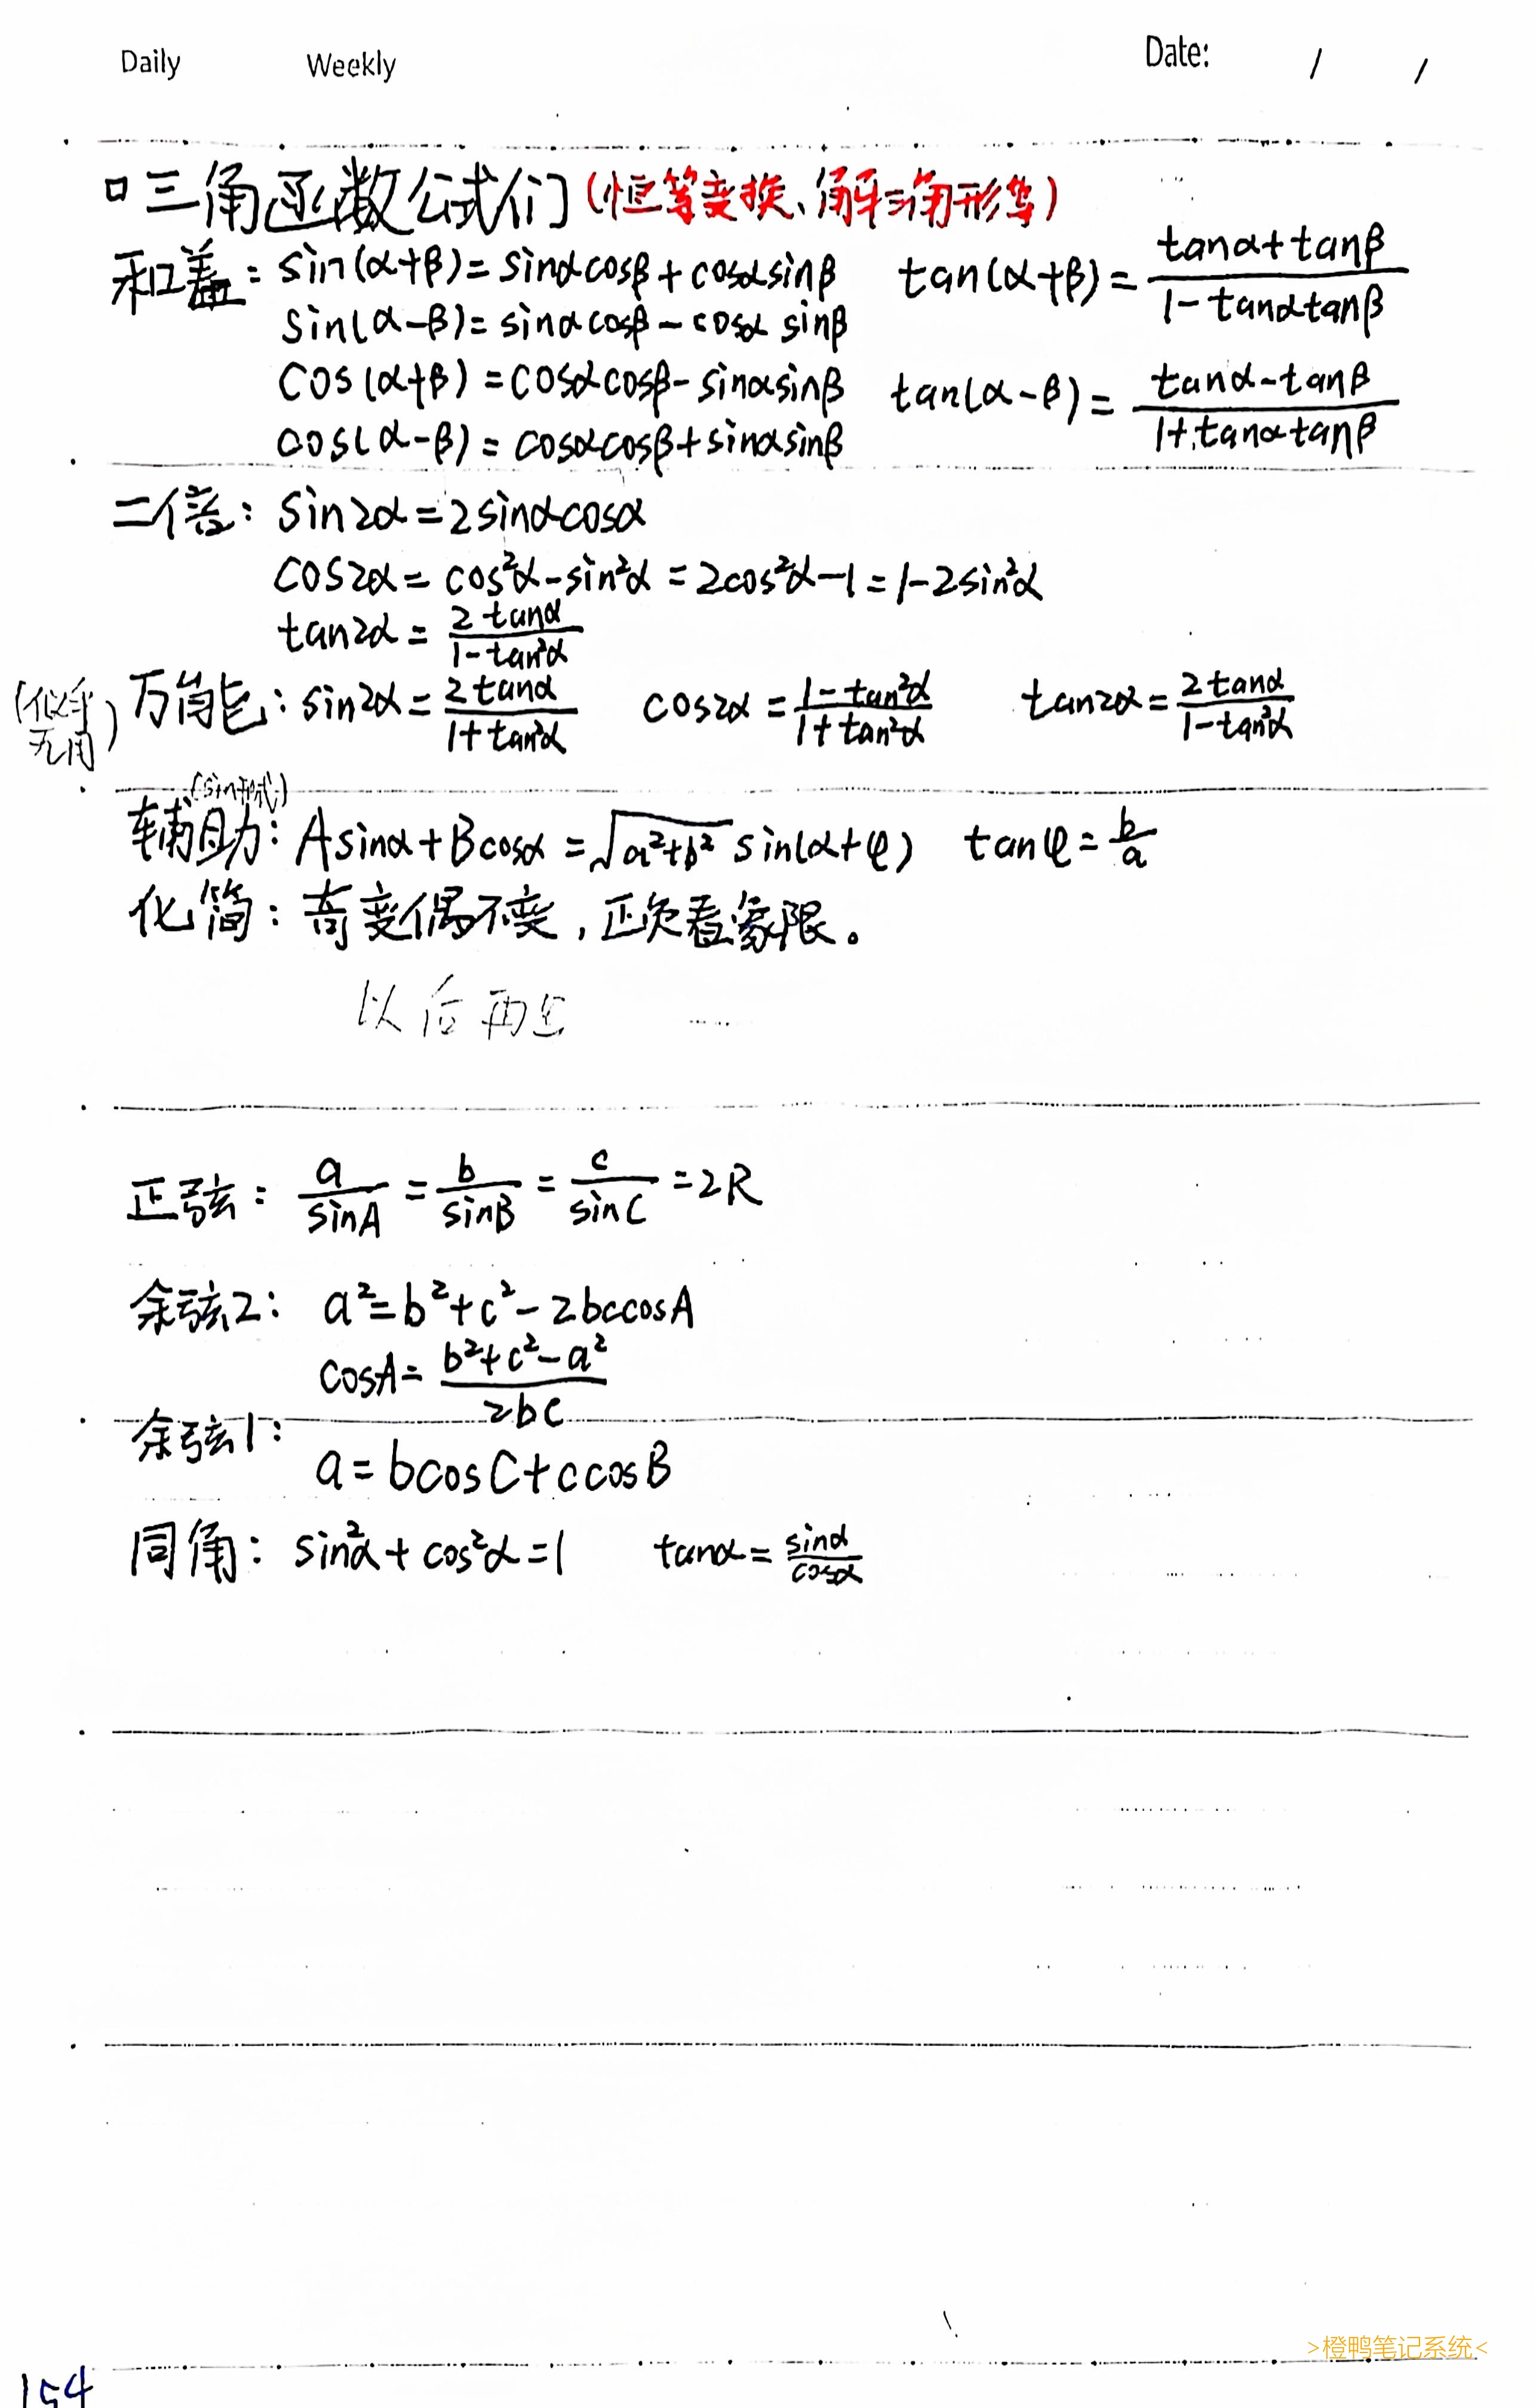 Daily Weekly Date: / /
口三角函数公式们(恒等变换、解三角形等)
和差: sin(α+β)=sinαcosβ+cosαsinβ tan(α+β)=(tanα+tanβ)/(1-tanαtanβ)
sin(α-β)=sinαcosβ-cosα sinβ
cos(α+β)=cosαcosβ-sinαsinβ tan(α-β)=(tanα-tanβ)/(1+tanαtanβ)
cos(α-β)=cosαcosβ+sinαsinβ
二倍: sin2α=2sinαcosα
cos2α=cos²α-sin²α=2cos²α-1=1-2sin²α
tan2α=2tanα/(1-tan²α)
(似乎无用)万能: sin2α=2tanα/(1+tan²α) cos2α=(1-tan²α)/(1+tan²α) tan2α=2tanα/(1-tan²α)
(sin形式)
辅助: Asinα+Bcosα=√(a²+b²) sin(α+φ) tanφ=b/a
化简: 奇变偶不变,正负看象限。
以后再
正弦: a/sinA=b/sinB=c/sinC=2R
余弦2: a²=b²+c²-2bccosA
cosA=(b²+c²-a²)/2bc
余弦1:
a=bcosC+ccosB
同角: sin²α+cos²α=1 tanα=sinα/cosα
>橙鸭笔记系统<
154